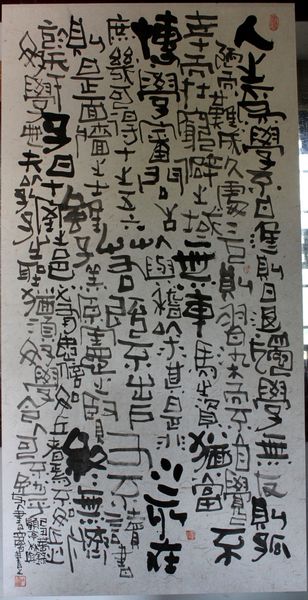 人之爲學不日進則日退獨學無友則孤
陋而難成久處一方則習染而不自覺不
幸而在窮僻之域無車馬之資猶當
博學審問古人與稽以求其是非之所在
庶幾可得十之五六若既不出户又不讀書
則是面牆之士雖子羔原憲之賢終無濟
於天下子曰十室之邑必有忠信如丘者焉不如丘之
好學也夫以孔子之聖猶須好學今人可不勉乎